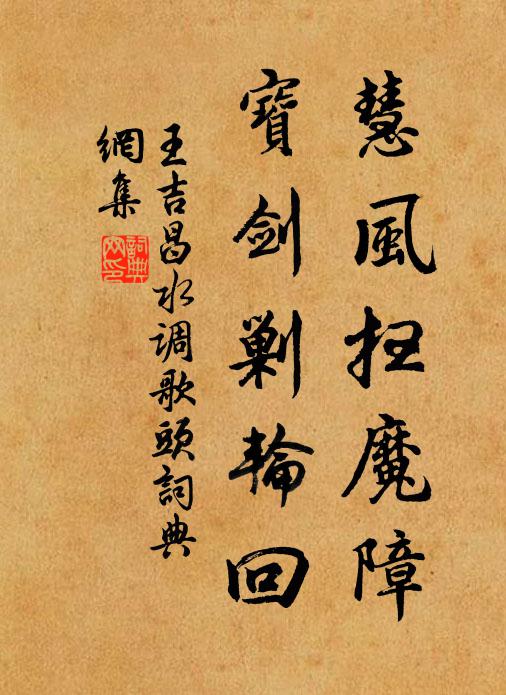 慧風扫魔障
寶劍剿輪回
王吉昌水调歌頭詞典
網集
詞典
网印